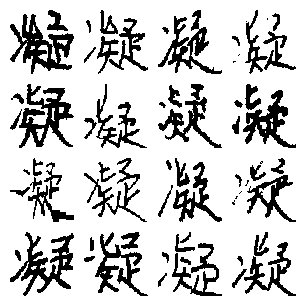 凝凝凝凝
凝凝凝凝
凝凝凝凝
凝凝凝凝